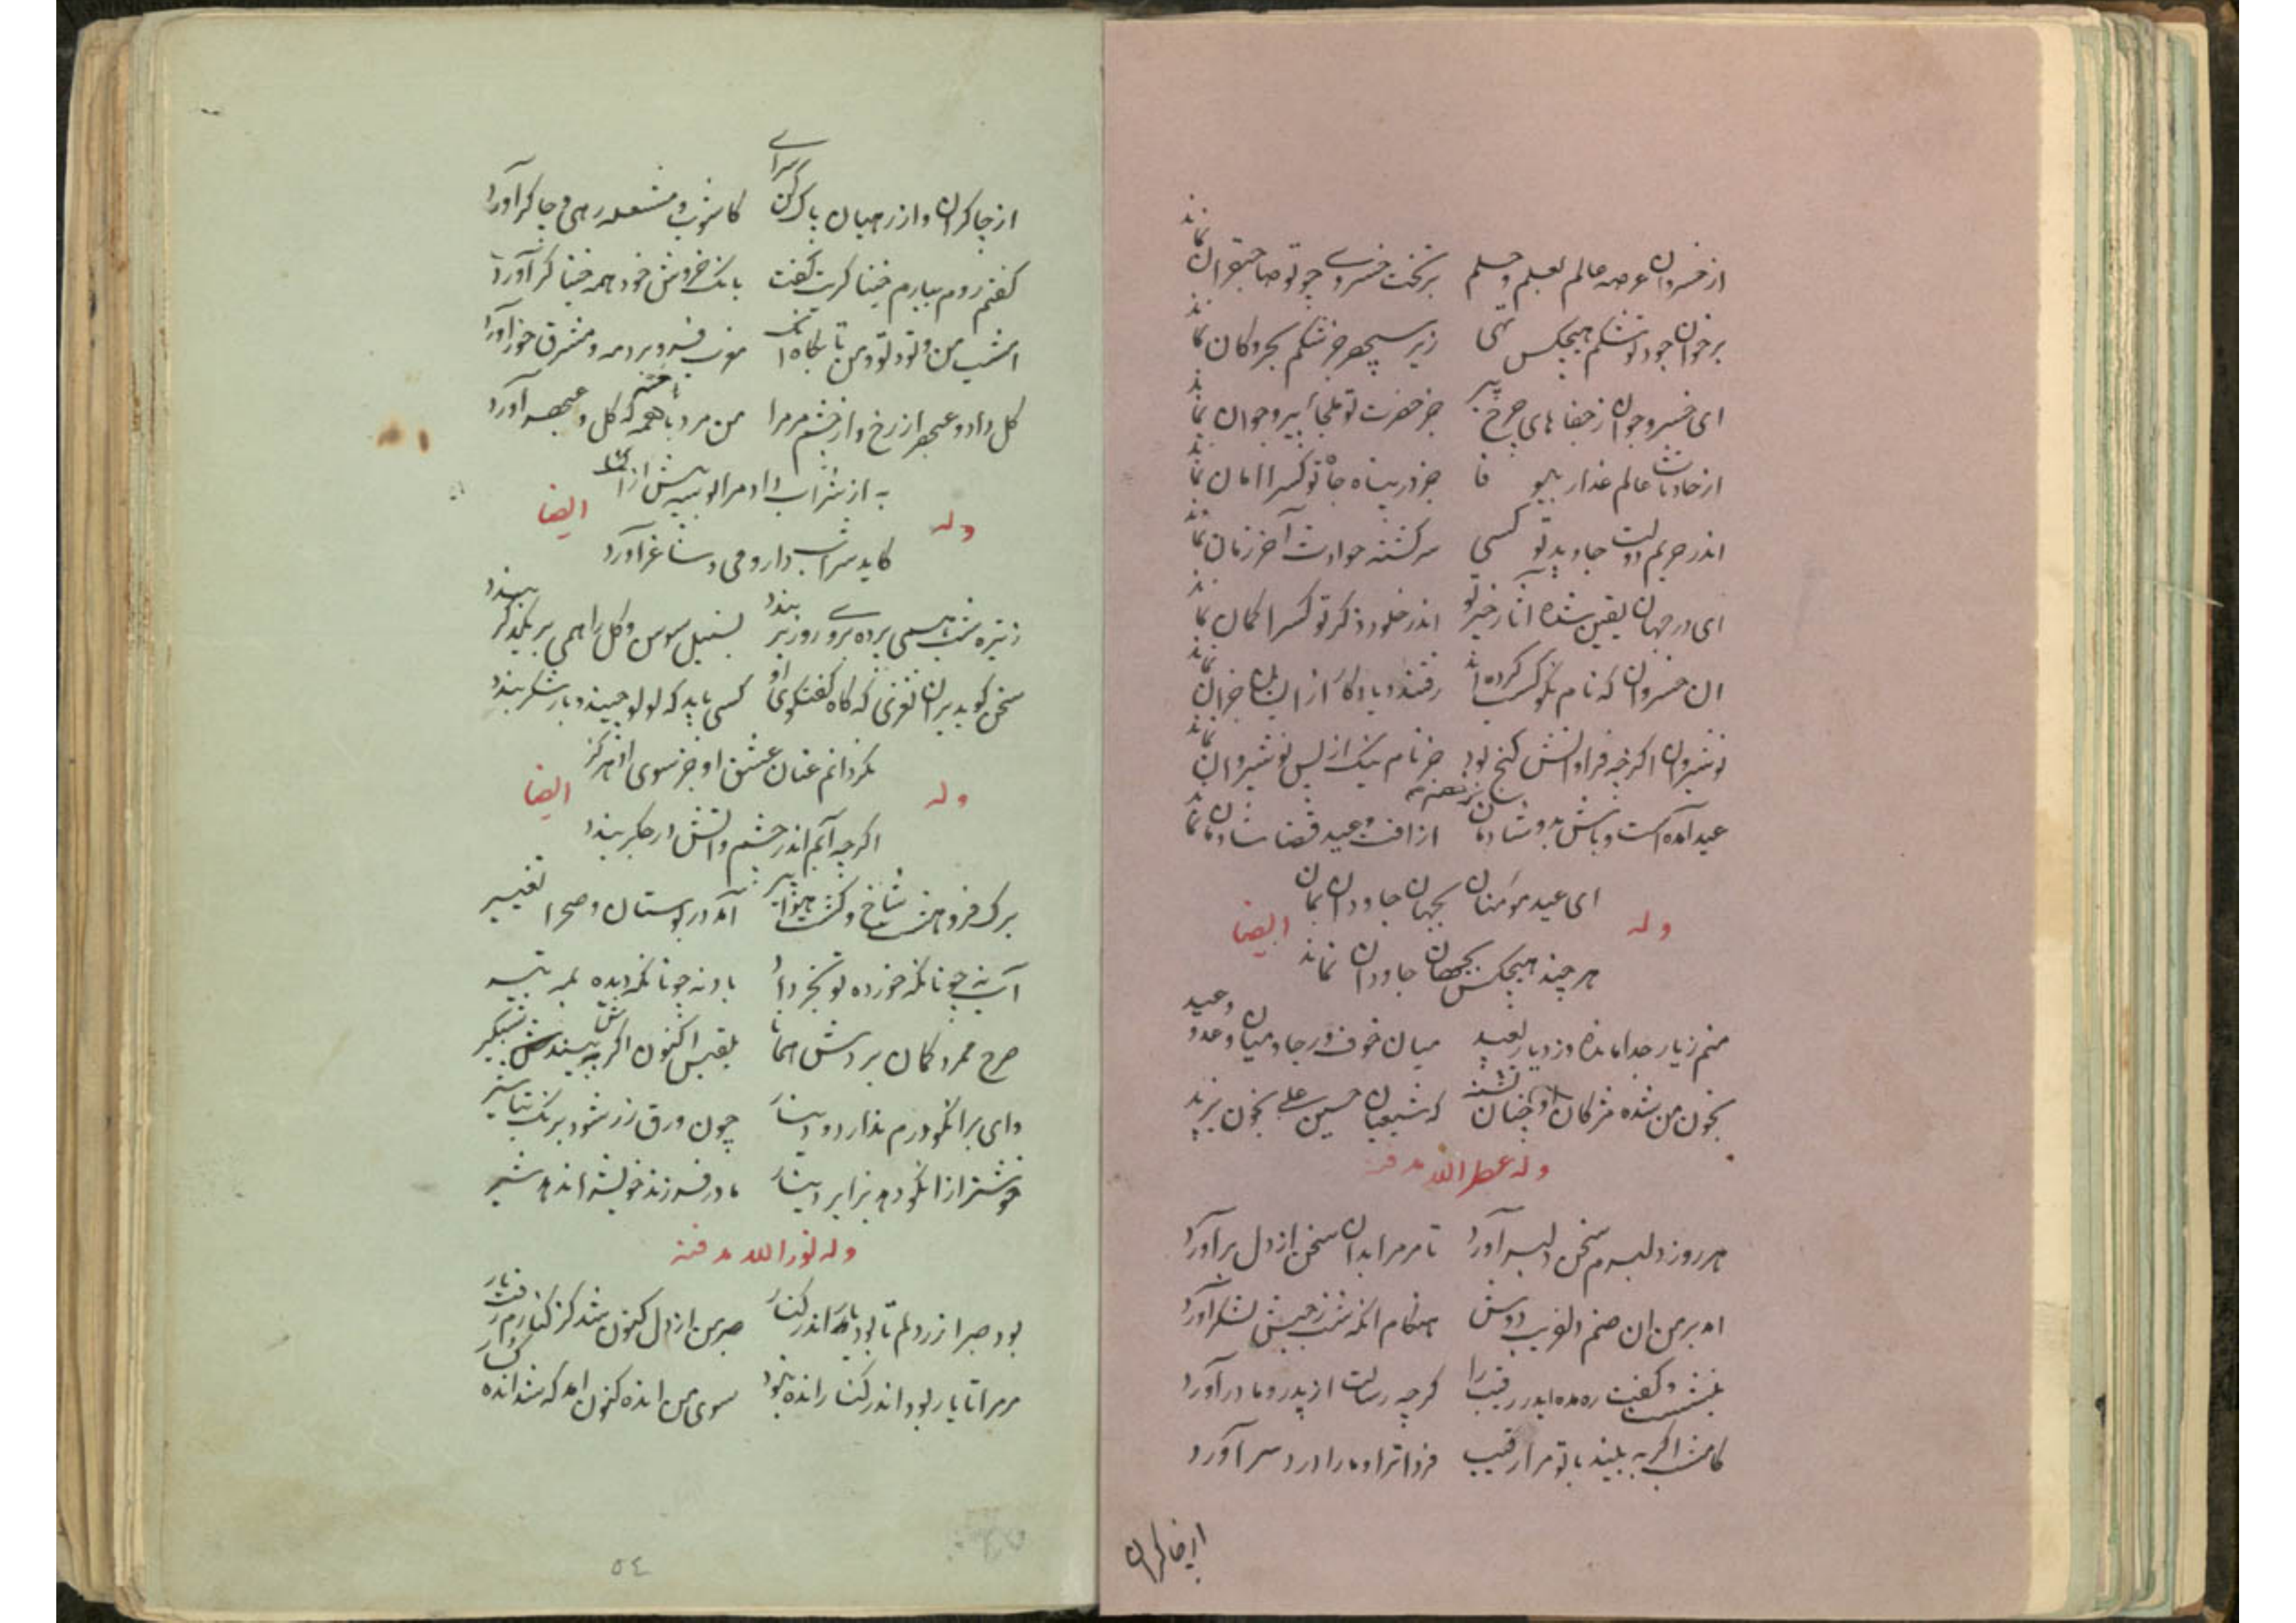 از خسروان عرصه عالم بعلم و حلم بر تخت خسروی چو تو صاحبقران نماند
بر خوان جود تو شکم هیچکس تهی زیر سپهر جز شکم بحر و کان نماند
ای خسرو جوان ز جفا های چرخ پیر جز حضرت تو ملجأ پیر و جوان نماند
از حادثات عالم غدار بیوفا جز در پناه جاه تو کسرا امان نماند
اندر حریم دولت جاوید تو کسی سرکشته حوادث آخر زمان نماند
ای در جهان یقین شده آثار خیر تو اندر خلود ذکر تو کسرا کمان نماند
ان خسروان که نام نکو کسب کرده اند رفتند و یادکار از ایشان جز ان نماند
نوشیروان اکرچه فراوانش کنج بود جز نام نیک از پس نوشیروان نماند
عید آمده است و باش بدو شادمان از افت وعید قضا شادمان نماند
ای عید مؤمنان بجهان جاودان بمان
وله ایضا
هر چند هیچکس بجهان جاودان نماند
منم ز یار جدا مانده وز دیار بعید میان خوف و رجا و میان وعد و وعید
بخون من شده مژکان او چنان تشنه که شیعیان حسین علی بخون یزید
وله عطر الله مرقده
هر روز دلبرم سخن دلبر آورد تا مر مرا بدان سخن از دل بر آورد
امد بر من ان صنم دلفریب دوش هنکام انکه شب ز حبش لشکر آورد
بنشست و کفت ره مده ایدر رقیب را کرچه رسالت از پدر و مادر آورد
کامشب اکر به بیند با تو مرا رقیب فردا ترا و ما را درد سر آورد
از چاکران
از چاکران و از رهیان پاک کن سرای کاشوب و مشعله رهی و چاکر آورد
کفتم روم بیارم خنیاکریت کفت بانک خروش خود همه خنیاکر آورد
امشب من و تو و تو و من تا بکاه انک مغرب فرو برد مه و مشرق خور آورد
کل داد و عبهر از رخ و از چشم مر مرا من مرد باهمه که کل و عبهر آورد
به از شراب داد مرا بوسه پیش از ان
وله ایضا
کاید شراب دار و می و ساغر آورد
ز تیره شب همی پرده بروی روز بر بندد بسنبل سوسن و کل را همی بر یکدکر بندد
سخن کوید بدان نغزی که کاه کفتکوی او کسی باید که لولو چیند و بار شکر بندد
نکردانم عنان عشق او جز سوی او هرکز
وله ایضا
اکرچه آبم اندر چشم و اتش در جکر بندد
برک فرو هشت شاخ و کشت هوا پیر آمد در بوستان و صحرا تغییر
آب نه چونانکه خورده بود بخرداد باد نه چونانکه دیده بد به تیر
صرح ممرد کمان بردش همانا بلقیس اکنون اکر به بیندش شبکیر
وای بر انکو درم ندارد و دینار چون ورق زر شود برنک تباشیر
خوشتر از انکو دهد بزایر دینار مادر فرزند خویش را ندهد شیر
وله نور الله مرقده
بود صبر از دلم تا بود یار اندر کنار صبر من از دل کنون شد کز کنارم رفت یار
مر مرا تا یار بود اندر کنار انده نبود سوی من انده کنون امد که شد انده کسار
٥٤